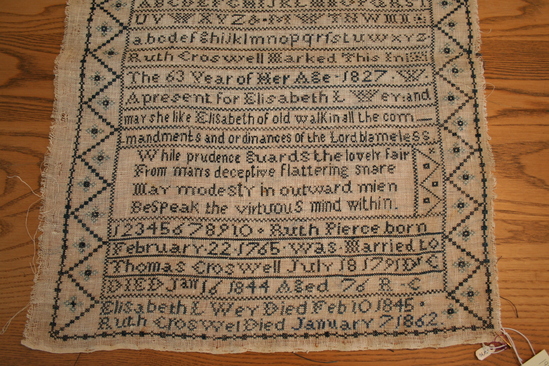 ABCDEFGHIJKLMNOPQRST
UVWXYZ&
abcdefghijklmnopqrſstuvwxyz
Ruth Croswell Marked This In
The 63 Year of Her Age 1827 W
A present for Elisabeth L Wey: and
may she like Elisabeth of old walk in all the com
mandments and ordinances of the Lord blameless
While prudence Guards the lovely fair
From mans deceptive flattering snare
May modesty in outward mien
Bespeak the virtuous mind within.
12345678910 Ruth Pierce born
February 22 1765 was Married to
Thomas Croswell July 18 1791
DIED Jan 16 1844 Aged 76 R C
Elisabeth L Wey Died Feb 10 1845
Ruth Croswel Died January 7 1862